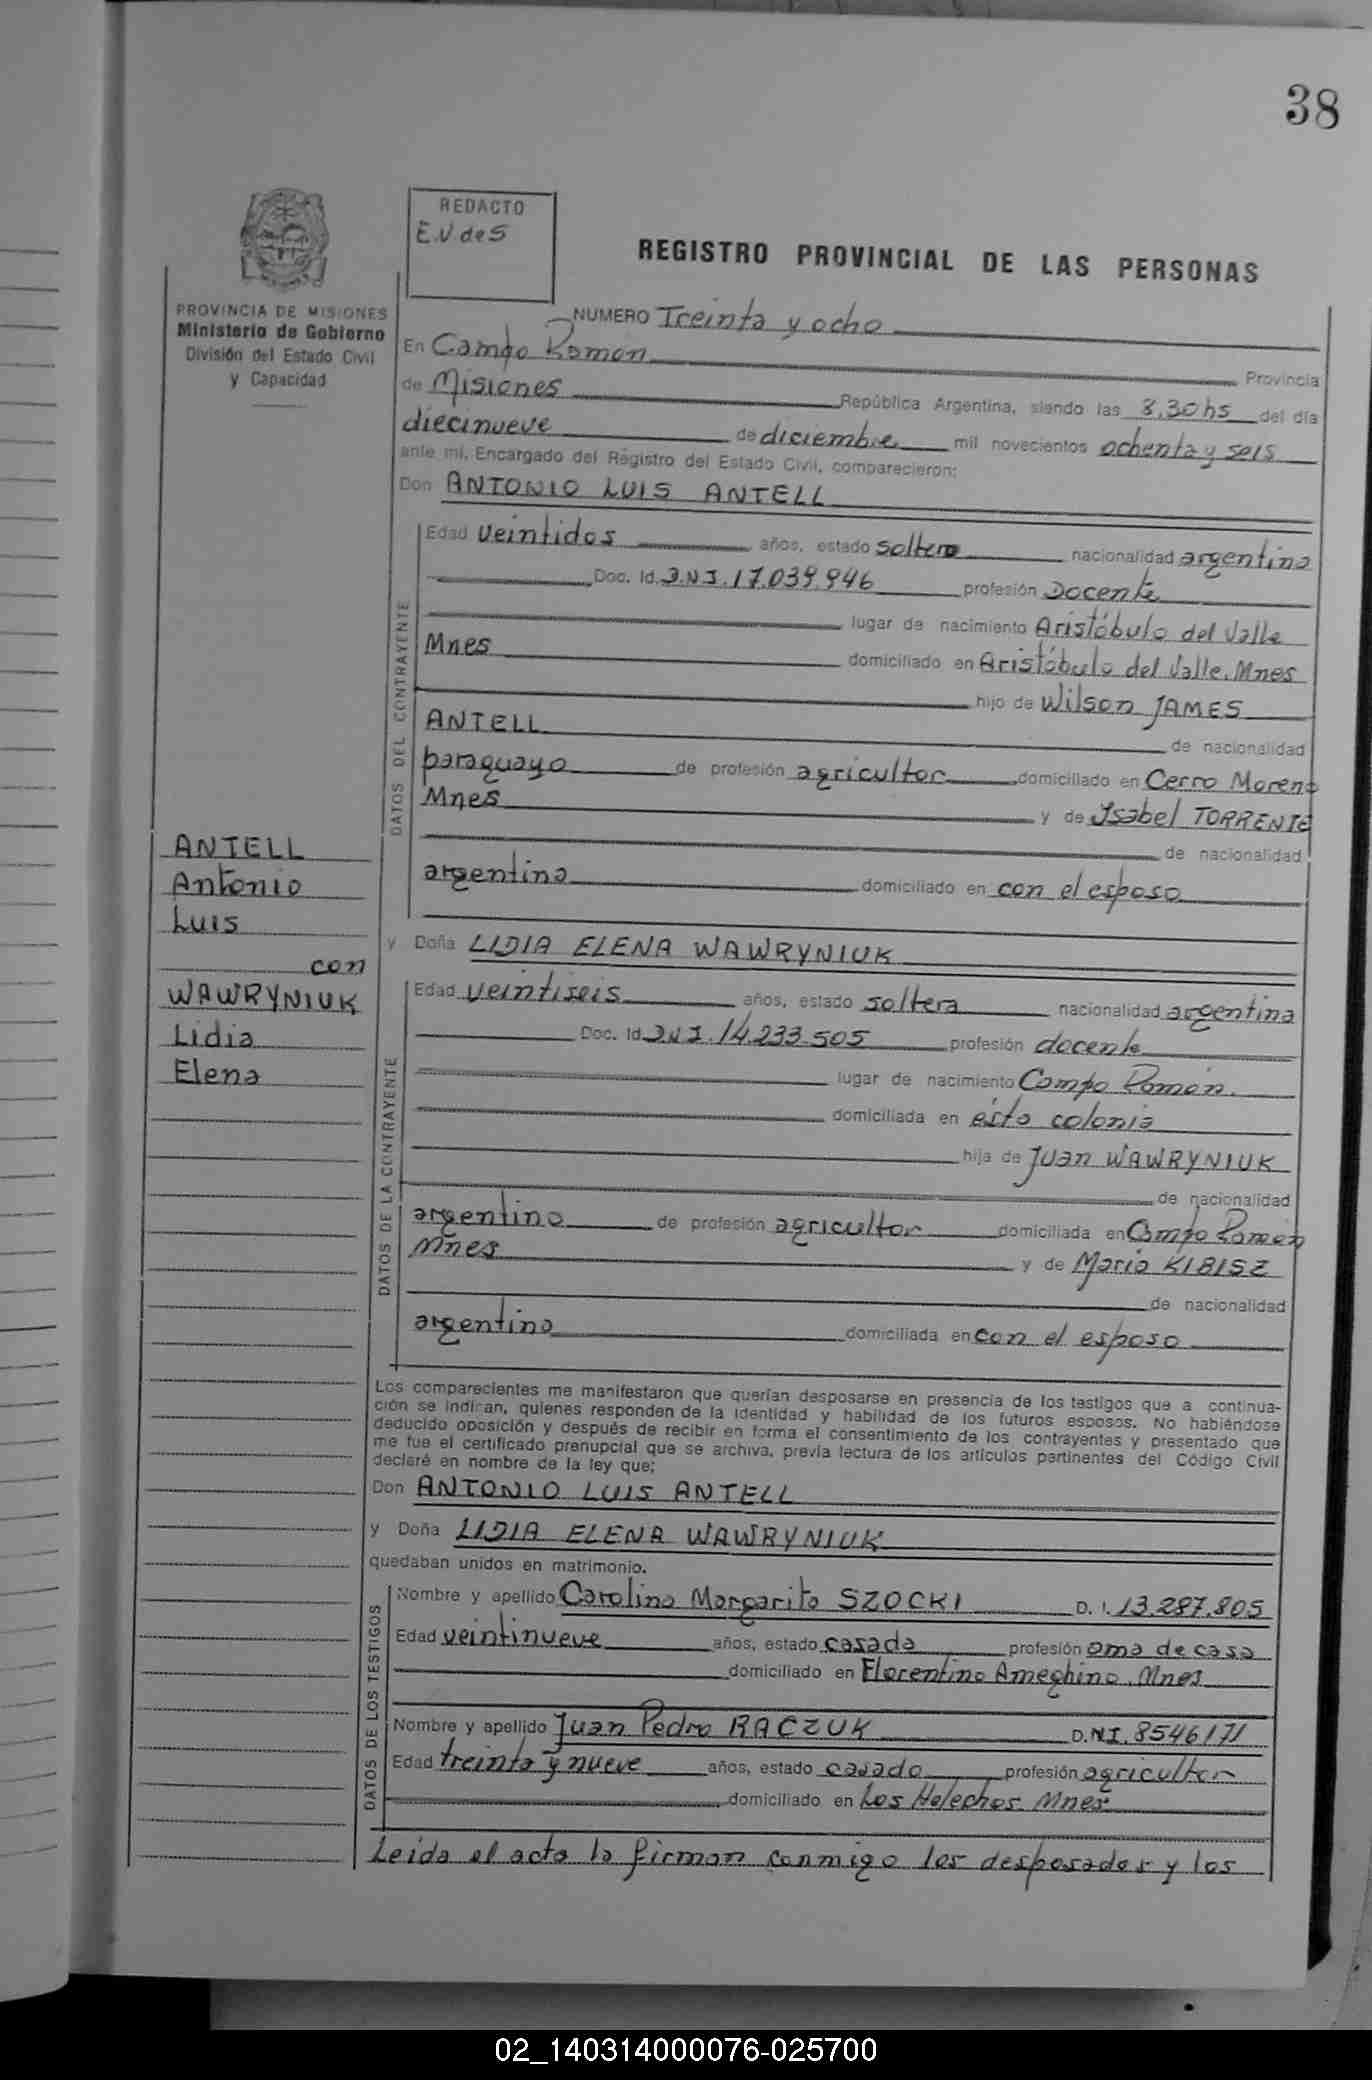 38
REDACTO
E.V de S
REGISTRO PROVINCIAL DE LAS PERSONAS
PROVINCIA DE MISIONES
Ministerio de Gobierno
División del Estado Civil
y Capacidad
NUMERO Treinta y ocho
En Campo Ramón Provincia
de Misiones República Argentina, siendo las 8,30 hs del día
diecinueve de diciembre mil novecientos ochenta y seis
ante mí, Encargado del Registro del Estado Civil, comparecieron:
Don ANTONIO LUIS ANTELL
DATOS DEL CONTRAYENTE
Edad veintidos años, estado soltero nacionalidad argentina
Doc. Id. D.N.I. 17.039.946 profesión Docente
lugar de nacimiento Aristóbulo del Valle
Mnes domiciliado en Aristóbulo del Valle. Mnes
hijo de Wilson JAMES
ANTELL de nacionalidad
paraguayo de profesión agricultor domiciliado en Cerro Moreno
Mnes y de Ysabel TORRENTE
de nacionalidad
argentina domiciliado en con el esposo
y Doña LIDIA ELENA WAWRYNIUK
ANTELL
Antonio
Luis
con
WAWRYNIUK
Lidia
Elena
DATOS DE LA CONTRAYENTE
Edad veintiseis años, estado soltera nacionalidad argentina
Doc. Id D.N.I. 14.233.505 profesión docente
lugar de nacimiento Campo Ramón.
domiciliada en ésta colonia
hija de Juan WAWRYNIUK
de nacionalidad
argentino de profesión agricultor domiciliada en Campo Ramón
Mnes y de María KIBISZ
de nacionalidad
argentina domiciliada en con el esposo
Los comparecientes me manifestaron que querían desposarse en presencia de los testigos que a continua-
ción se indican, quienes responden de la identidad y habilidad de los futuros esposos. No habiéndose
deducido oposición y después de recibir en forma el consentimiento de los contrayentes y presentado que
me fue el certificado prenupcial que se archiva, previa lectura de los artículos pertinentes del Código Civil
declaré en nombre de la ley que;
Don ANTONIO LUIS ANTELL
y Doña LIDIA ELENA WAWRYNIUK
quedaban unidos en matrimonio.
DATOS DE LOS TESTIGOS
Nombre y apellido Carolina Margarita SZOCKI D. I. 13.287.805
Edad veintinueve años, estado casada profesión ama de casa
domiciliado en Florentino Ameghino. Mnes
Nombre y apellido Juan Pedro RACZUK D.N.I. 8546171
Edad treinta y nueve años, estado casado profesión agricultor
domiciliado en Los Helechos. Mnes
Leída el acta la firman conmigo los desposados y los
02_140314000076-025700